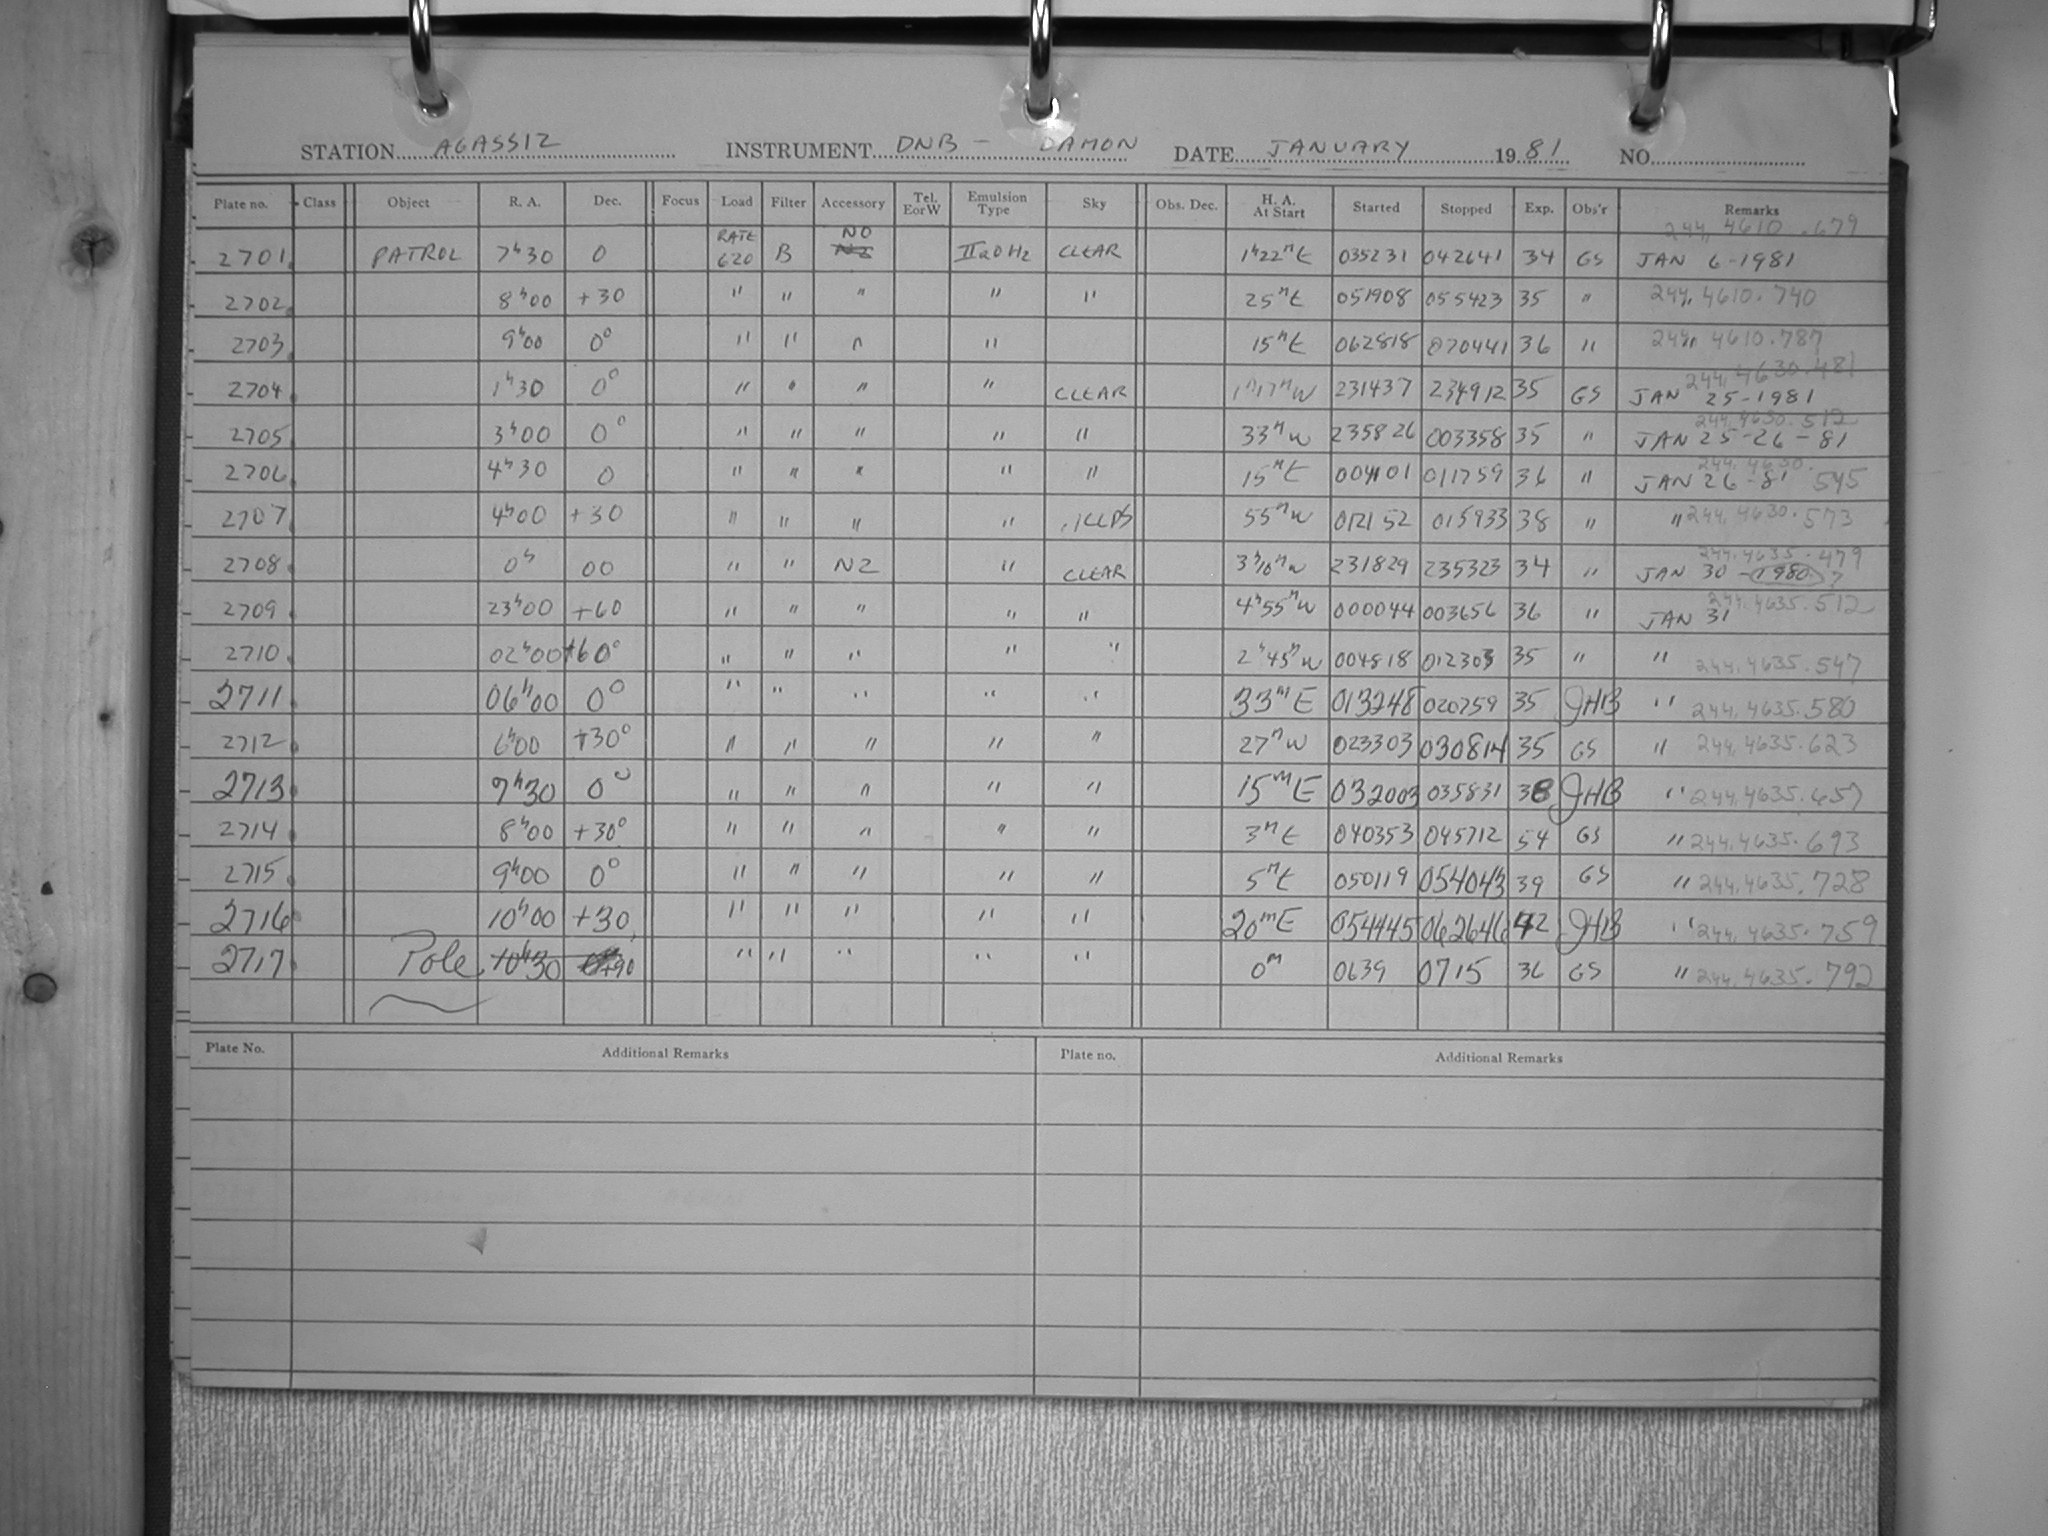 STATION AGASSIZ INSTRUMENT DNB - DAMON DATE JANUARY 1981 NO.
Plate no. Class Object R. A. Dec. Focus Load Filter Accessory Tel. EorW Emulsion Type Sky Obs. Dec. H. A. At Start Started Stopped Exp. Obs'r Remarks
244,4610.679
2701 PATROL 7h30 0 RATE 620 B NO IIaO H2 CLEAR 1h22mE 035231 042641 34 GS JAN 6-1981
2702 8h00 +30 " " " " " 25mE 051908 055423 35 " 244,4610.740
2703 9h00 0° " " " " 15mE 062818 070441 36 " 244,4610.787
244,4630.481
2704 1h30 0° " " " " CLEAR 1h17mW 231437 234912 35 GS JAN 25-1981
244,4630.512
2705 3h00 0° " " " " " 33mW 235826 003358 35 " JAN 25-26-81
244,4630.
2706 4h30 0 " " " " " 15mE 004101 011759 36 " JAN 26-81 545
2707 4h00 +30 " " " " 55mW 012152 015933 38 " " 244,4630.573
244,4635.479
2708 0h 00 " " N2 " CLEAR 3h10mW 231829 235323 34 " JAN 30-1980?
244,4635.512
2709 23h00 +60 " " " " " 4h55mW 000044 003656 36 " JAN 31
2710 02h00 +60° " " " " " 2h45mW 004818 012303 35 " " 244,4635.547
2711 06h00 0° " " " " " 33mE 013248 020759 35 JHB " 244,4635.580
2712 6h00 +30° " " " " " 27mW 023303 030814 35 GS " 244,4635.623
2713 7h30 0° " " " " " 15mE 032003 035831 38 JHB " 244,4635.657
2714 8h00 +30° " " " " " 3mE 040353 045712 54 GS " 244,4635.693
2715 9h00 0° " " " " " 5mE 050119 054043 39 GS " 244,4635.728
2716 10h00 +30 " " " " " 20mE 054445 062646 42 JHB " 244,4635.759
2717 Pole 10h30 +90 " " " " " 0m 0639 0715 36 GS " 244,4635.792
Plate No. Additional Remarks Plate no. Additional Remarks